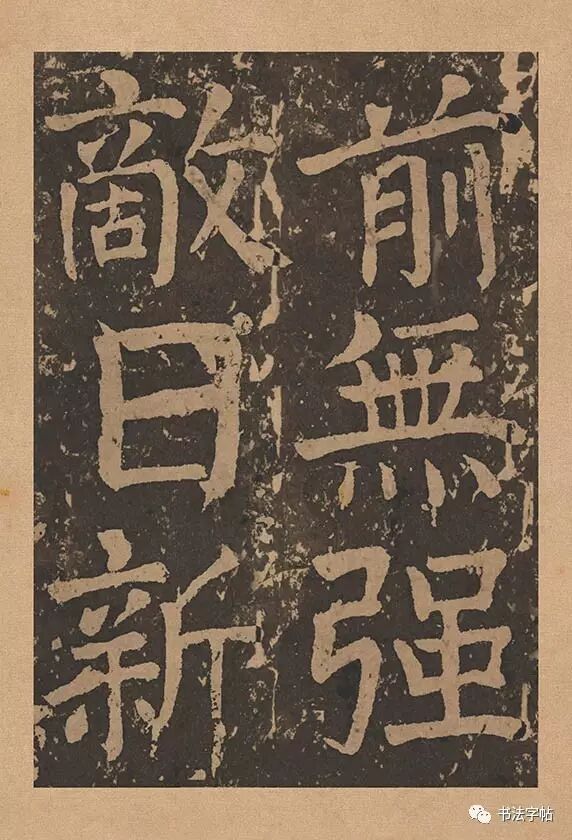 前無强
敵日新
书法字帖